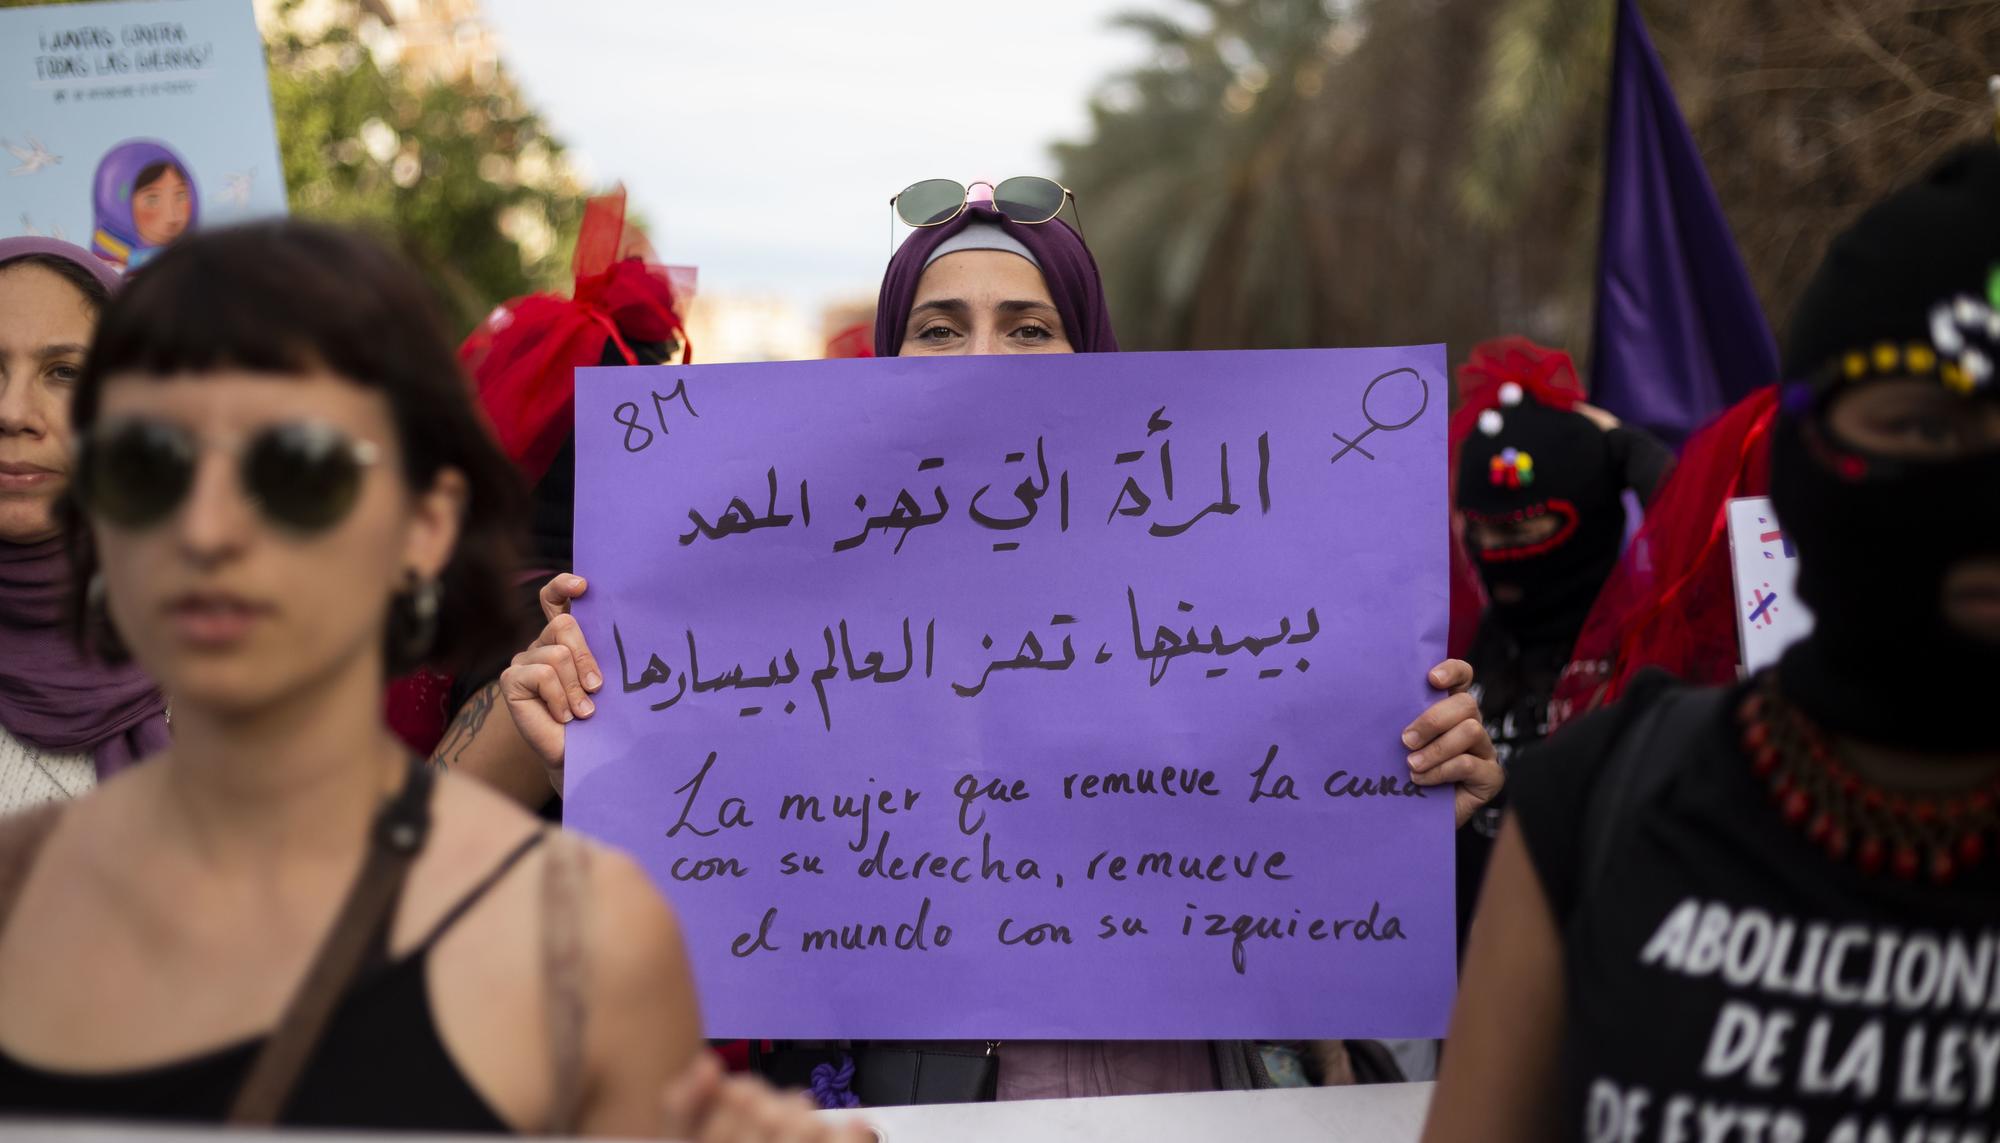 ¡JUNTAS CONTRA
TODAS LAS GUERRAS!
8M
المرأة التي تهز المهد
بيمينها، تهز العالم بيسارها
La mujer que remueve La cuna
con su derecha, remueve
el mundo con su izquierda
ABOLICION
DE LA LEY
DE EXTRANJ